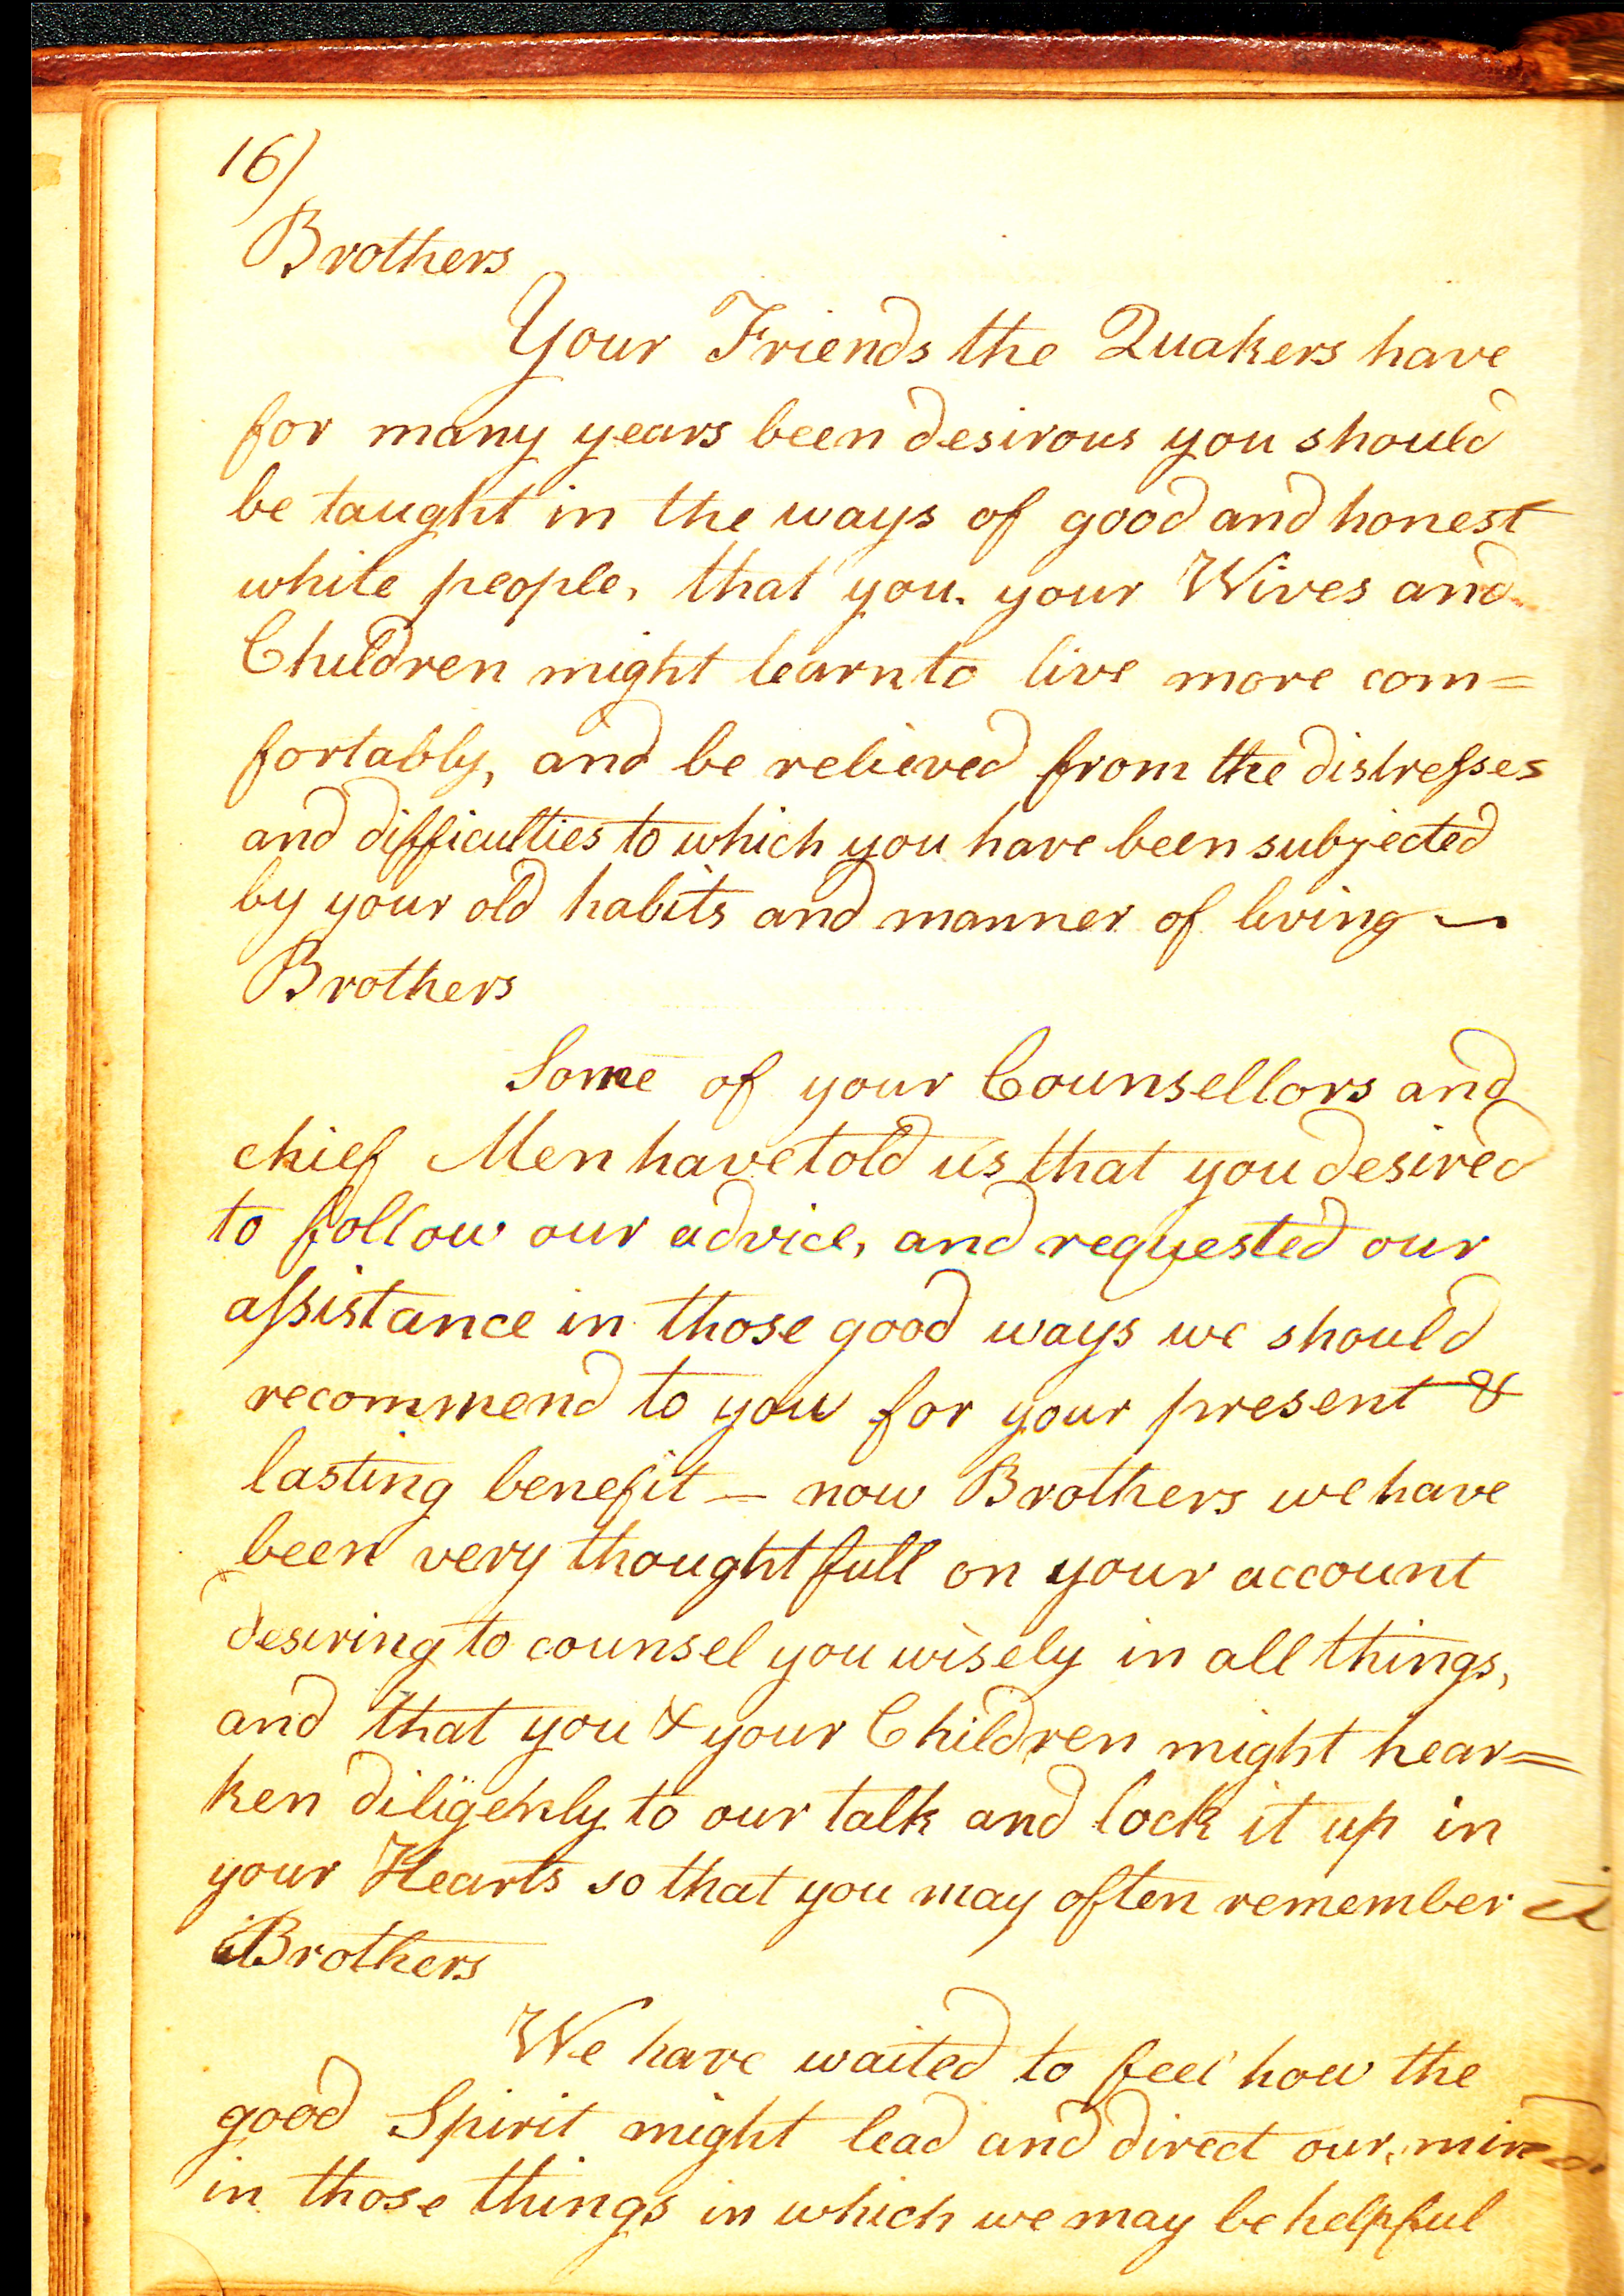 16)
Brothers
Your Friends the Quakers have
for many years been desirous you should
be taught in the ways of good and honest
white people, that you. your Wives and
Children might learn to live more com=
fortably, and be relieved from the distreſses
and difficulties to which you have been subjected
by your old habits and manner of living —
Brothers
Some of your Counsellors and
chief Men have told us that you desired
to follow our advice, and requested our
aſsistance in those good ways we should
recommend to you for your present &
lasting benefit — now Brothers we have
been very thoughtfull on your account
desiring to counsel you wisely in all things,
and that you & your Children might hear=
ken diligently to our talk and lock it up in
your Hearts so that you may often remember it
Brothers
We have waited to feel how the
good Spirit might lead and direct our mind
in those things in which we may be helpful